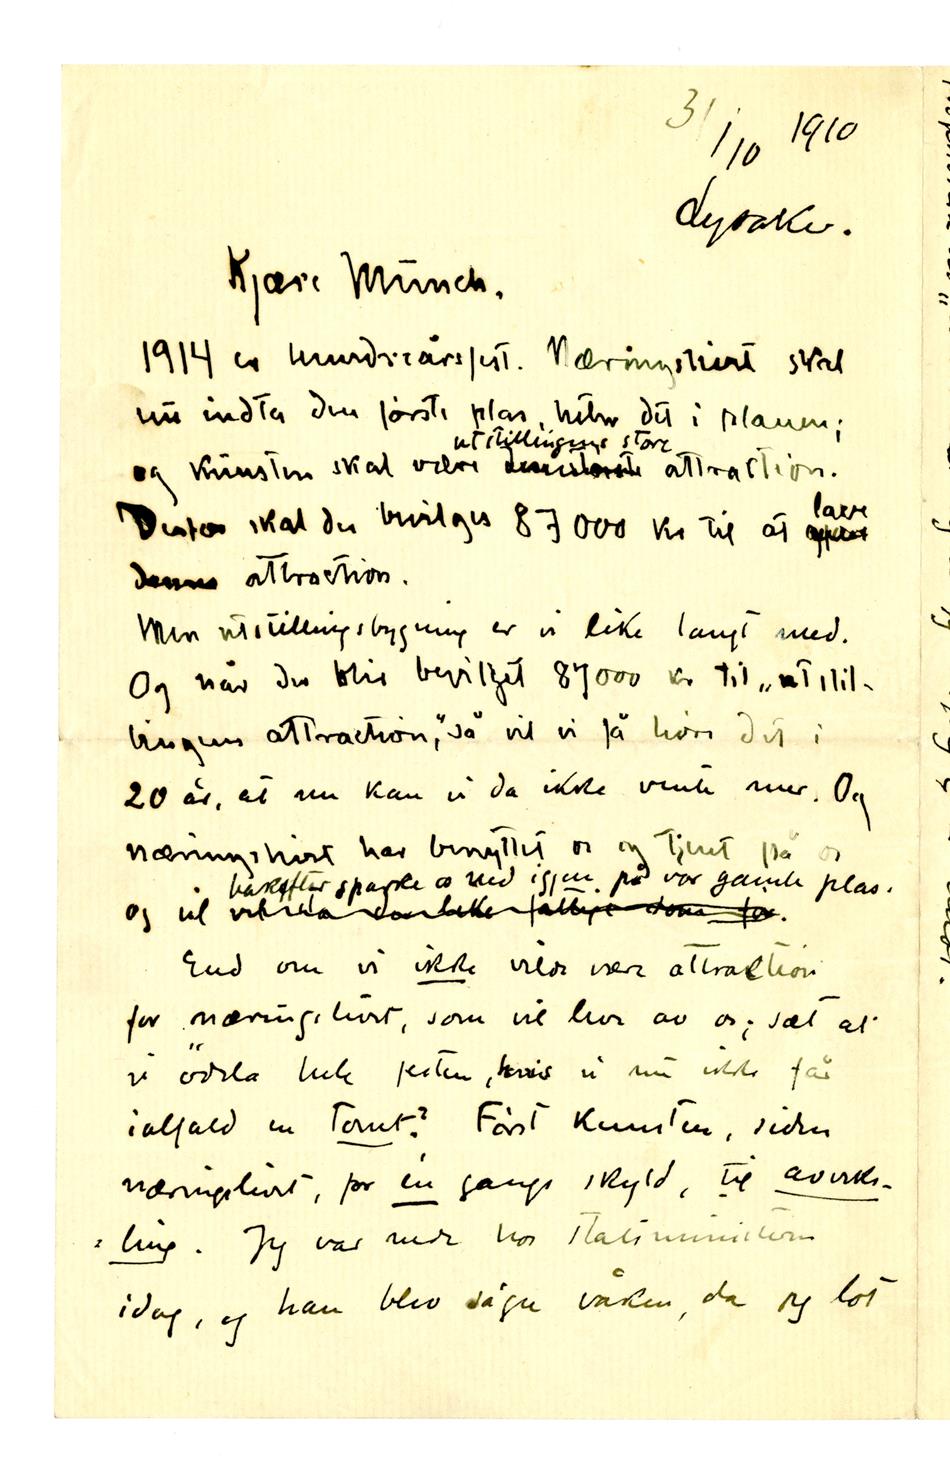 31/10 1910
Lysaker.
Kjære Münch.
1914 er hundreårsfest. Næringslivet skal
nu indta den første plas, heter det i planen;
og kunsten skal være utstillingens store attraction.
Derfor skal der bevilges 87000 kr til at lave
denne attraction.
Men utstillingsbygning er vi like langt med.
Og når der blir bevilget 87000 kr til „utstil-
lingens attraction", så vil vi få høre det i
20 år, at nu kan vi da ikke vente mer. Og
næringslivet har benyttet os og tjent på os
og vil bakefter sparke os ned igjen på vor gamle plas.
End om vi ikke vilde være attraction
for næringslivet, som vil leve av os; sæt at
vi ödela hele festen, hvis vi nu ikke får
ialfald en tomt? Først kunsten, siden
næringslivet, for én gangs skyld, til avveks-
ling. Jeg var nede hos statsministeren
idag, og han blev våken, da jeg lot